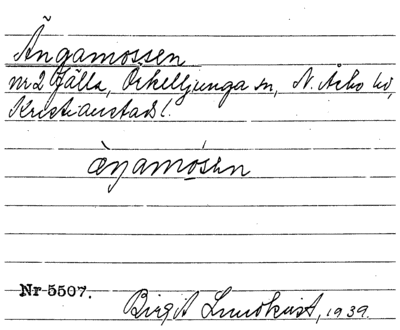 Ängamossen
nr 2 Fjälla, Örkelljunga sn, N. Åsbo hd,
Kristianstads l.
æŋamósən
Nr 5507.
Birgit Lundkvist, 1939.